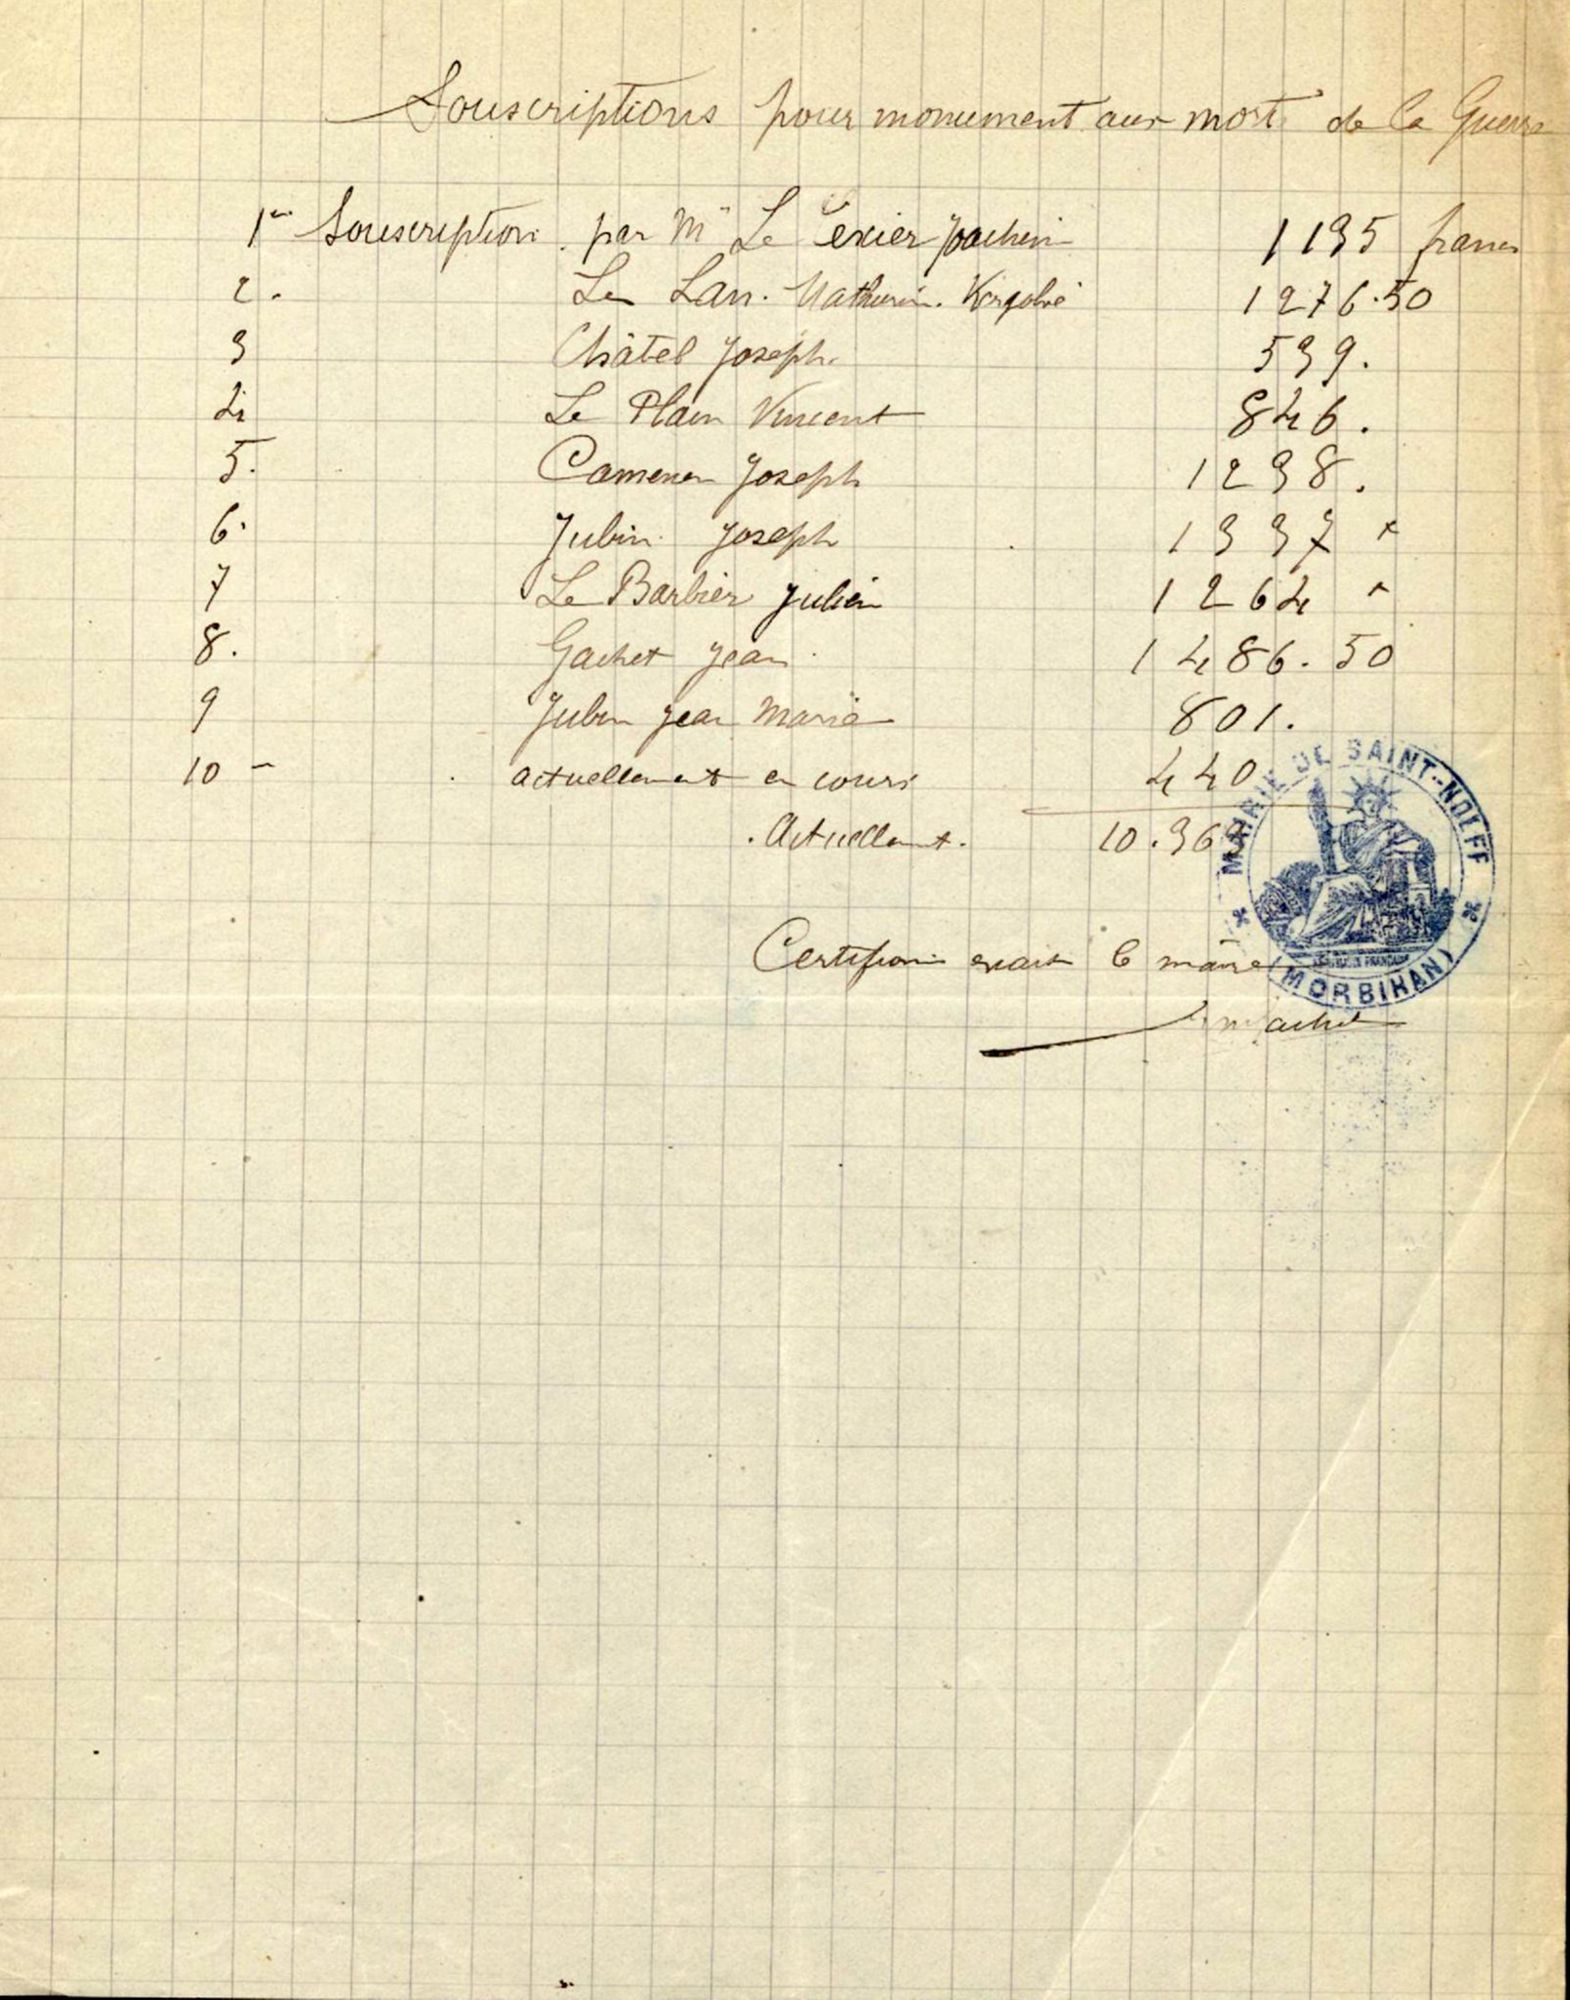 Souscriptions pour monument aux mort de la Guerre
1ère Souscription par Mr Le Texier Joachim 1135 francs
2. Le Lan. Mathurin. 1276.50
3 Châtel Joseph. 539.
4 Le Plain Vincent 846.
5. Camenen Joseph 1238.
6. Jubin Joseph 1337 "
7 Le Barbier Julien 1264 "
8. Gachet Jean 1486.50
9 Jubin Jean Marie 801.
10 - actuellement en cours 440
Actuellement. 10.363
Certifions exact le maire
MAIRIE DE SAINT-NOLFF
(MORBIHAN)